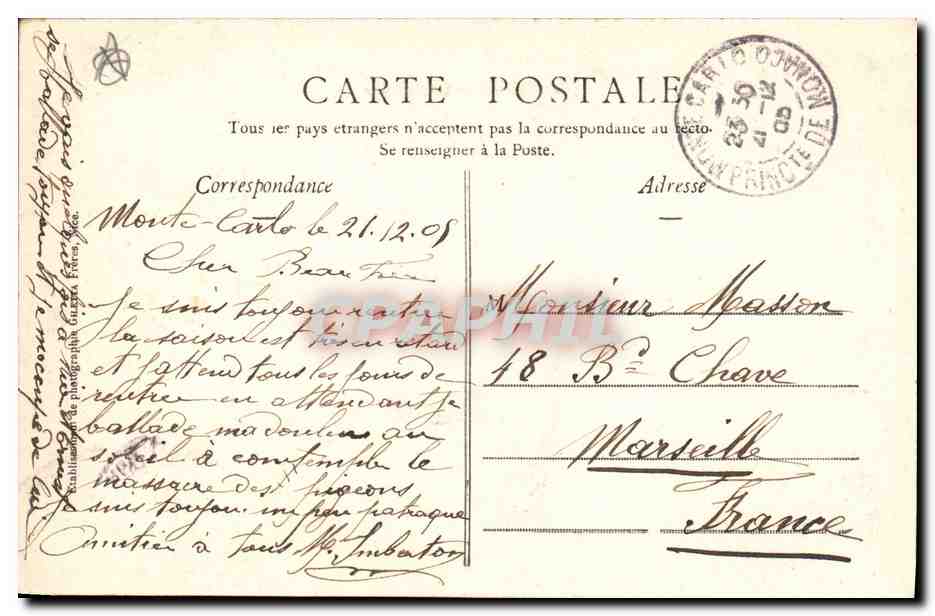 CARTE POSTALE
Tous les pays etrangers n'acceptent pas la correspondance au recto.
Se renseigner à la Poste.
Correspondance
Adresse
MONTE CARLO
PRINCTÉ DE MONACO
23 30
21 -12
05
Monte-Carlo le 21.12.05
Cher Beau Frère
Je suis toujours
la saison est très en retard
et j'attend tous les jours de
rentrée en attendant je
ballade ma douleur au
soleil à contempler le
massacre des pigeons
suis toujours un peu patraque
Amitier à tous M. Imberton
Monsieur Masson
48 Bd Chave
Marseille
France
Je vais
se ballade toujours et je m'occupe de lui
Etablissement de photographie GILETTA Frères, Nice.
CPAPHIL